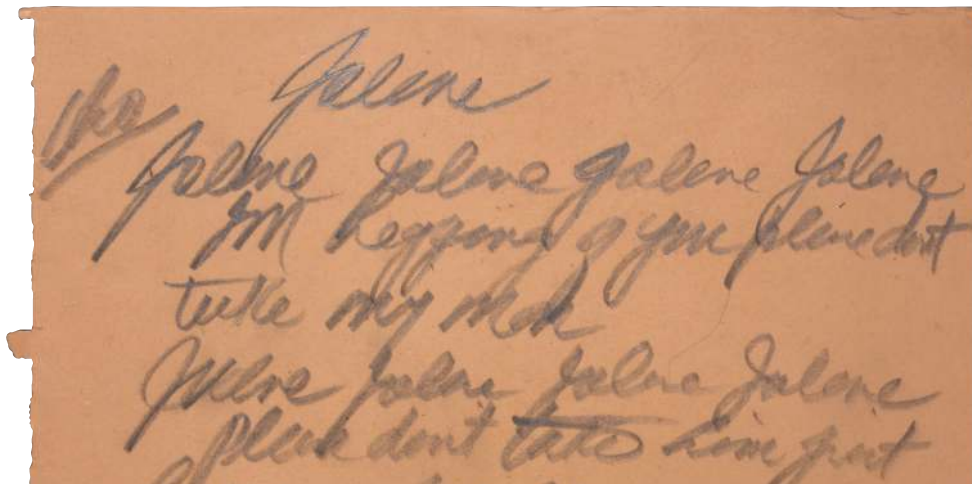 Jolene
cho
Jolene Jolene Jolene Jolene
Im begging of you please dont
take my man
Jolene Jolene Jolene Jolene
please dont take him just